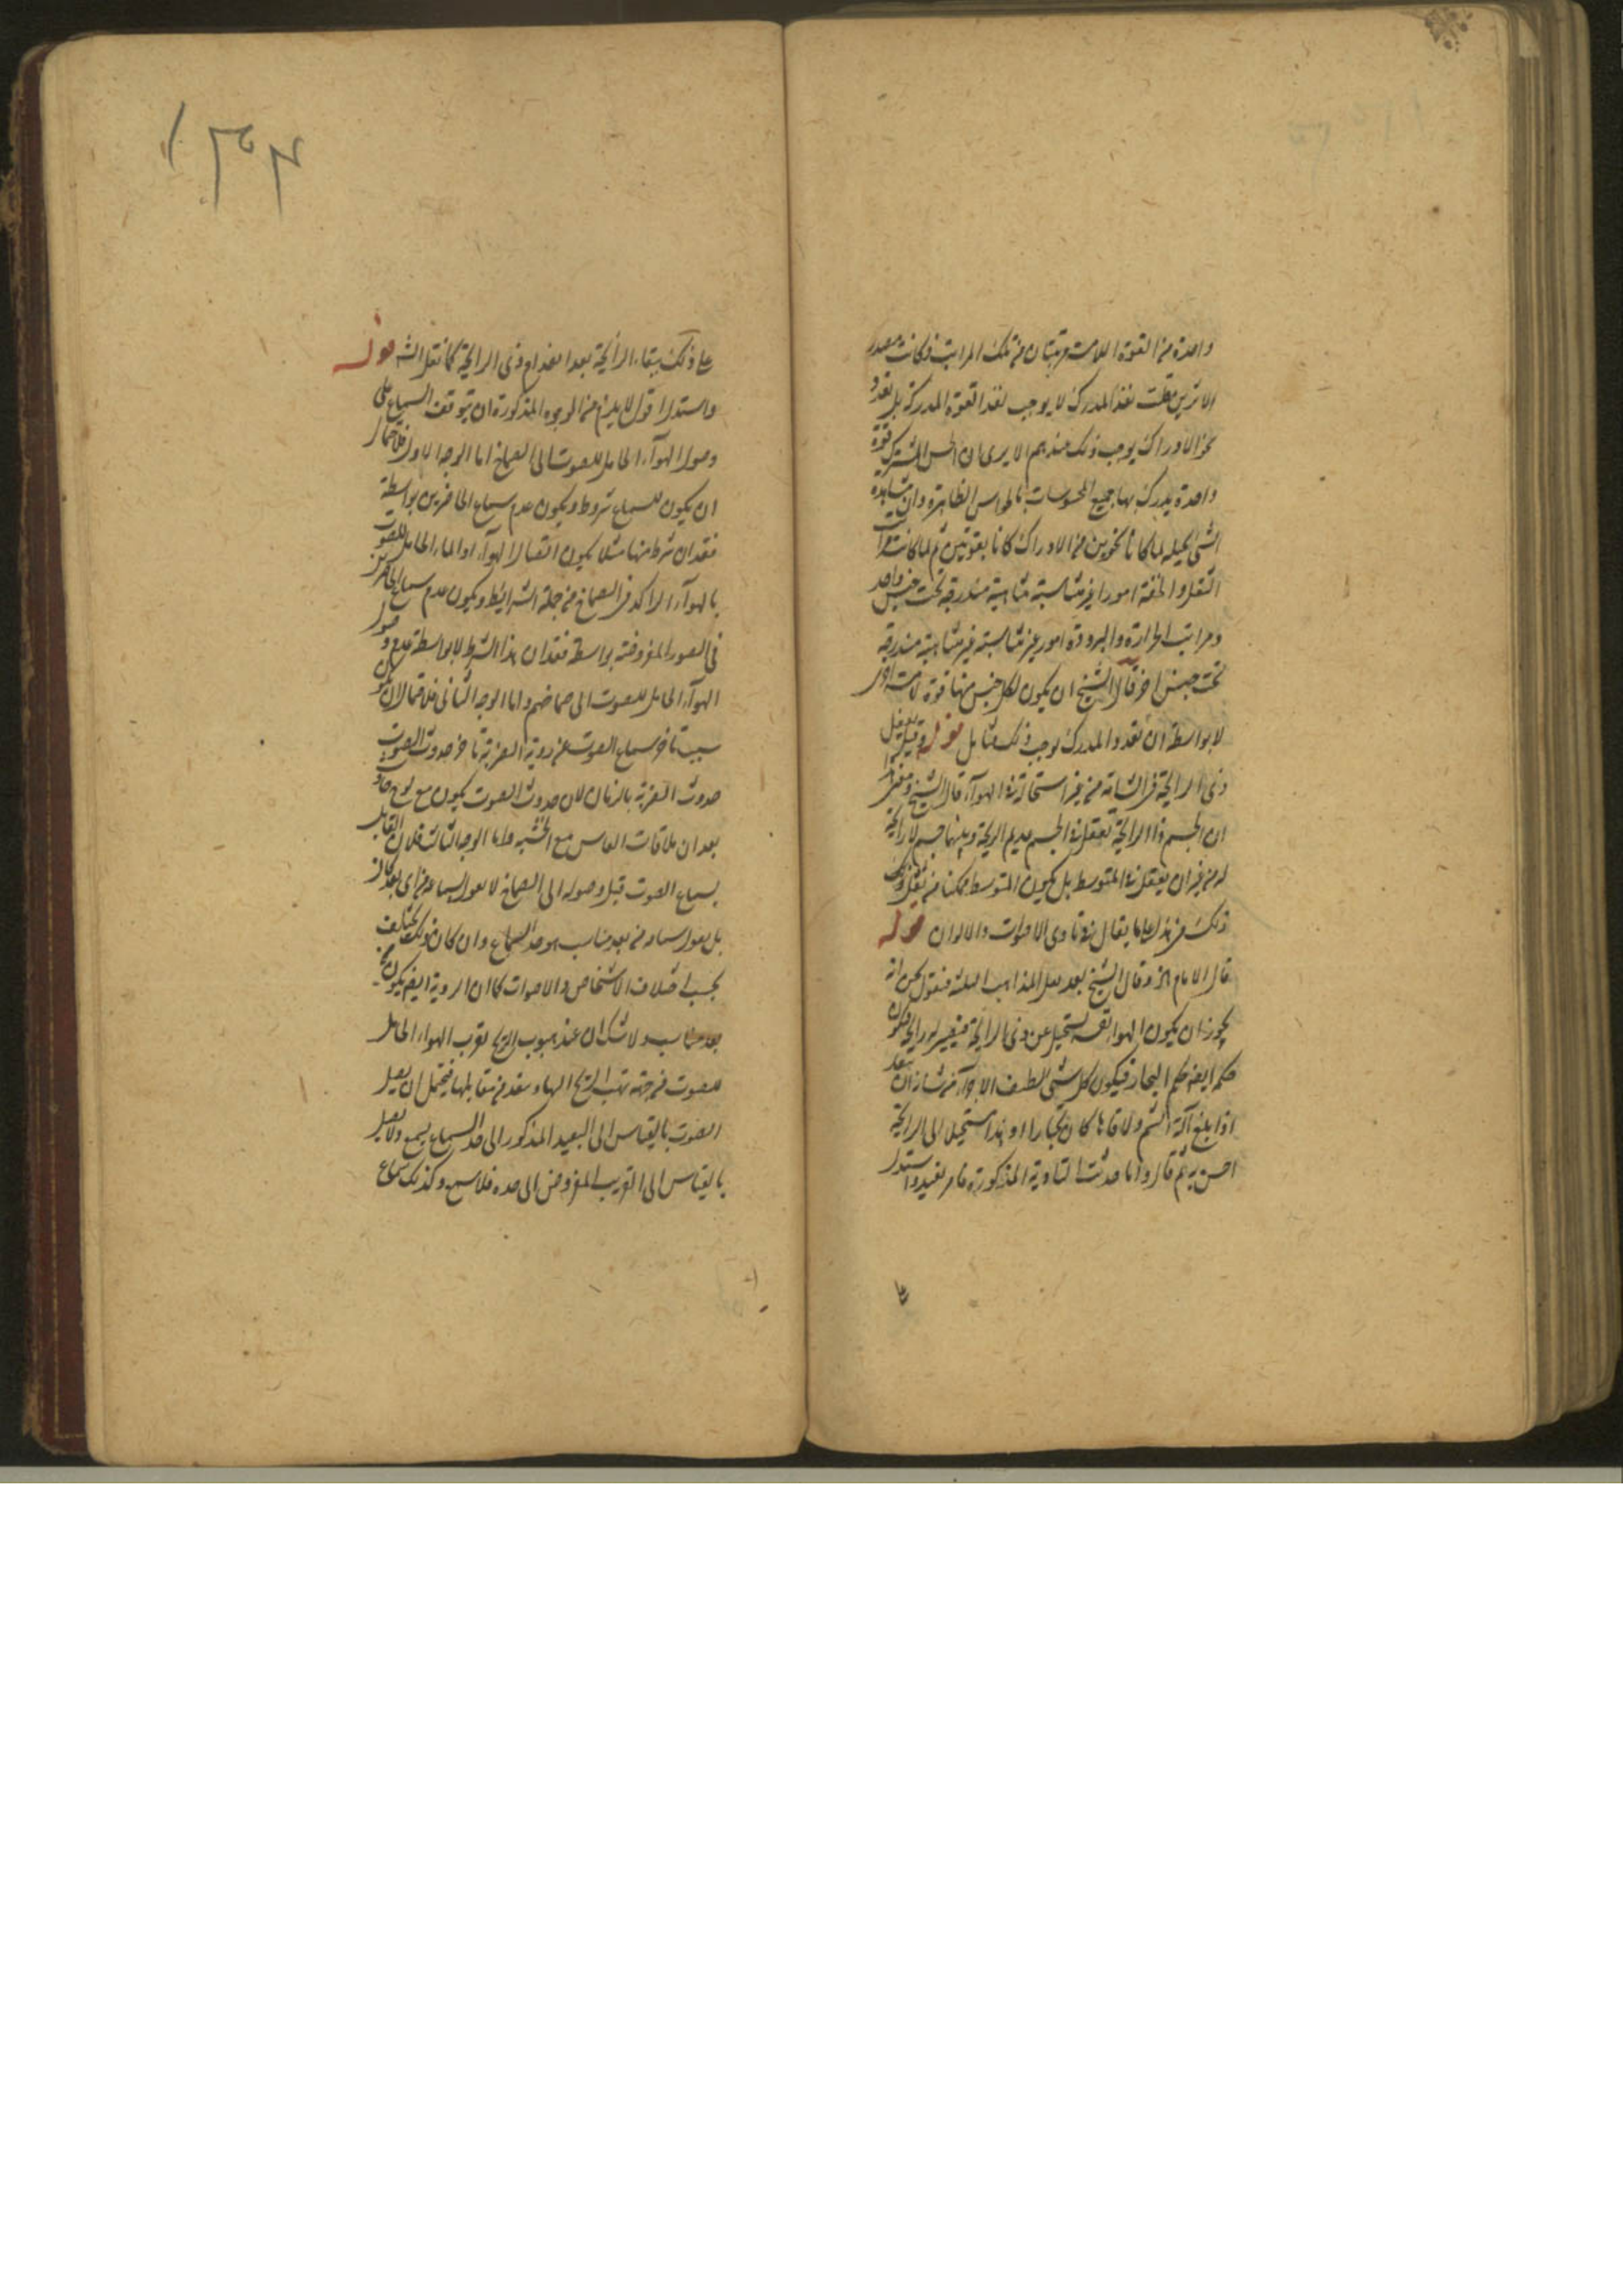 واحدة من القوة اللامسة مرتبتان من تلك المراتب فكانت متعددة
الا ترين قلت تعدد المدرك لا يوجب تعدد القوة المدركة بل تعدد
نحو الادراك يوجب ذلك عندهم الا يرى ان الحس المشترك قوة
واحدة يدرك بها جميع المحسوسات بالحواس الظاهرة وان مشاهدة
الشئ وتخيله لما كانا نحوين من الادراك كانا بقوتين ثم لما كانت مراتب
الثقل والخفة امورا غير متناسبة متناهية مندرجة تحت جنس واحد
ومراتب الحرارة والبرودة امور غير متناسبة غير متناهية مندرجة
تحت جنس اخر قال الشيخ ان يكون لكل جنس منها قوة لامسة اخرى
لا بواسطة ان تعدد المدرك يوجب ذلك فتأمل قوله وقيل بفعل
ذي الرايحة في الشامة من غير استحالة في الهواء قال الشيخ ومعنى هذا
ان الجسم ذا الرايحة يفعل في الجسم عديم الريحة وبينهما جسم لا رايحة
له من غير ان يفعل في المتوسط بل يكون المتوسط ممكنا من فعل ذلك
ذلك في هذا على ما يقال في تأدى الاصوات والالوان قوله
قال الامام الخ وقال الشيخ بعد نقل المذاهب الثلثة فنقول نحن انه
يجوز ان يكون الهواء نفسه يستحيل عن ذي الرايحة فيصير له رايحة فيكون
حكمه ايضا حكم البخار فيكون كل شئ لطيف الاجزاء من شانه ان ينفذ
اذا بلغ آلة الشم ولاقاها كان بخارا او هواء مستحيلا الى الرايحة
احس به ثم قال واما حديث التأدية المذكورة فامر بعيد واستدل
على
١٣٣
على ذلك ببقاء الرايحة بعد انعدام ذي الرايحة كما نقل الش قوله
واستدلا اقول لا يلزم من الوجوه المذكورة ان يتوقف السماع على
وصول الهواء الحامل للصوت الى الصماخ اما الوجه الاول فلاحتمال
ان يكون للسماع شروط ويكون عدم سماع الحاضرين بواسطة
فقدان شرط منها مثلا يكون اتصال الهواء او الماء الحامل للصوت
بالهواء الراكد في الصماخ من جملة الشرايط ويكون عدم سماع الحاضرين
في الصور المفروضة بواسطة فقدان هذا الشرط لا بواسطة عدم وصول
الهواء الحامل للصوت الى صماخهم واما الوجه الثاني فلاحتمال ان يكون
سبب تاخر سماع الصوت عن روية الضربة تاخر حدوث الصوت
حدوث الضربة بالزمان لان حدوث الصوت يكون مع نوع
بعد ان ملاقات الفاس مع الخشبة واما الوجه الثالث فلان القايل
بسماع الصوت قبل وصوله الى الصماخ لا يقول بسماعه من اي بعد كان
بل يقول بسماعه من بعد مناسب هو حد السماع وان كان ذلك يختلف
بحسب اختلاف الاشخاص والاصوات كما ان الروية ايضا يكون
بعد مناسب ولا شك ان عند هبوب الريح يقرب الهواء الحامل
للصوت من جهة تهب الريح اليها ويبعد من مقابلها فيحتمل ان يصل
الصوت بالقياس الى البعيد المذكور الى حد السماع يسمع ولا يصل
بالقياس الى القريب المفروض الى حده فلا يسمع وكذلك سماع